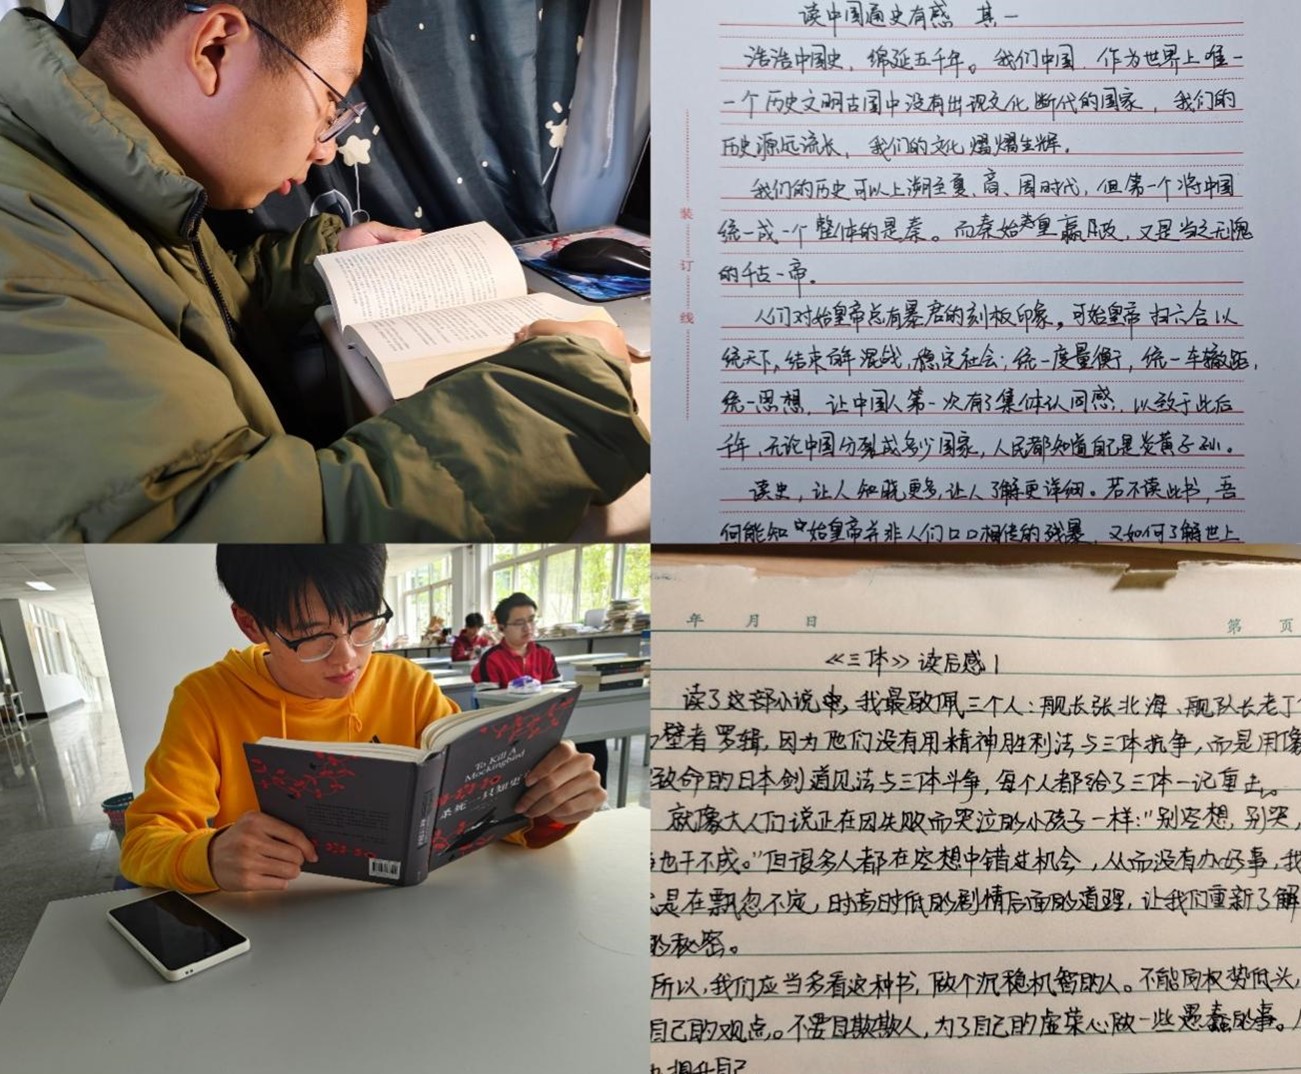 读中国通史有感 其一
浩浩中国史，绵延五千年。我们中国，作为世界上唯一
一个历史文明古国中没有出现文化断代的国家，我们的
历史源远流长，我们的文化熠熠生辉。
我们的历史可以上溯至夏、商、周时代，但第一个将中国
统一成一个整体的是秦。而秦始皇嬴政，又是当之无愧
的千古一帝。
人们对始皇帝总有暴君的刻板印象，可始皇帝扫六合以
统天下，结束混战，稳定社会；统一度量衡，统一车辙距，
统一思想，让中国人第一次有了集体认同感，以致于此后
千年，无论中国分裂成多少国家，人民都知道自己是炎黄子孙。
读史，让人知晓更多，让人了解更详细。若不读此书，吾
何能知始皇帝并非人们口口相传的残暴，又如何了解世上
装
订
线
To Kill A
Mockingbird
杀死一只知更鸟
年 月 日
第 页
《三体》读后感1
读了这部小说，我最敬佩三个人：舰长张北海，舰队长老丁
壁者罗辑，因为他们没有用精神胜利法与三体抗争，而是用像
致命的日本剑道见法与三体斗争，每个人都给了三体一记重击。
就像大人们说正在因失败而哭泣的小孩子一样：“别空想，别哭，
也干不成。”但很多人都在空想中错过机会，从而没有办好事，我
是在飘忽不定，时高时低的剧情后面的道理，让我们重新了解
的秘密。
所以，我们应当多看这种书，做个沉稳机智的人。不能向权势低头，
自己的观点。不要自欺欺人，为了自己的虚荣心做一些愚蠢的事。
提升自己